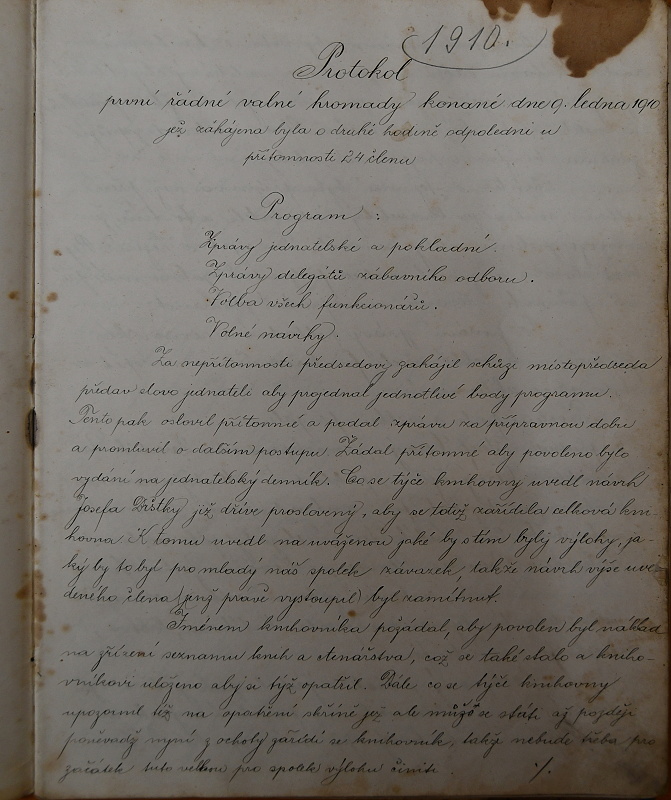 1910.
Protokol
první řádné valné hromady konané dne 9. ledna 1910
jež zahájena byla o druhé hodině odpolední u
přítomnosti 24 členu
Program :
Zprávy jednatelské a pokladní.
Zprávy delegátů zábavního odboru.
Volba všech funkcionářů.
Volné návrhy.
Za nepřítomnosti předsedovy zahájil schůzi místopředseda
předav slovo jednateli aby projednal jednotlivé body programu.
Tento pak oslovil přítomné a podal zprávu za přípravnou dobu
a promluvil o dalším postupu. Žádal přítomné aby povoleno bylo
vydání na jednatelský denník. Co se týče knihovny uvedl návrh
Josefa Drštky již dříve proslovený, aby se totiž zařídela celková kni-
hovna. K tomu uvedl na uváženou jaké by s tím byly výlohy, ja-
ký by to byl pro mladý náš spolek závazek, takže návrh výše uve-
deného člena (jenž pravě vystoupil) byl zamítnut.
Jménem knihovníka požádal, aby povolen byl náklad
na zřízení seznamu knih a čtenářstva, což se také stalo a kniho-
vníkovi uloženo aby si týž opatřil. Dále co se týče knihovny
upozornil též na opatření skříně jež ale může se státi až později
poněvadž nyní z ochoty zařídí se knihovník, takže nebude třeba pro
začátek tuto velkou pro spolek výlohu činiti. ./.